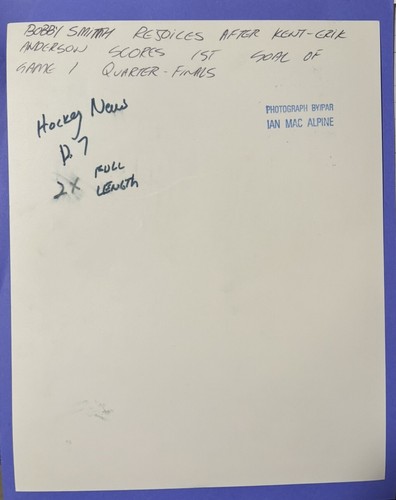 BOBBY SMITH REJOICES AFTER KENT-ERIK
ANDERSON SCORES 1ST GOAL OF
GAME 1 QUARTER-FINALS
Hockey News
P. 7
2X FULL
LENGTH
PHOTOGRAPH BY/PAR
IAN MAC ALPINE